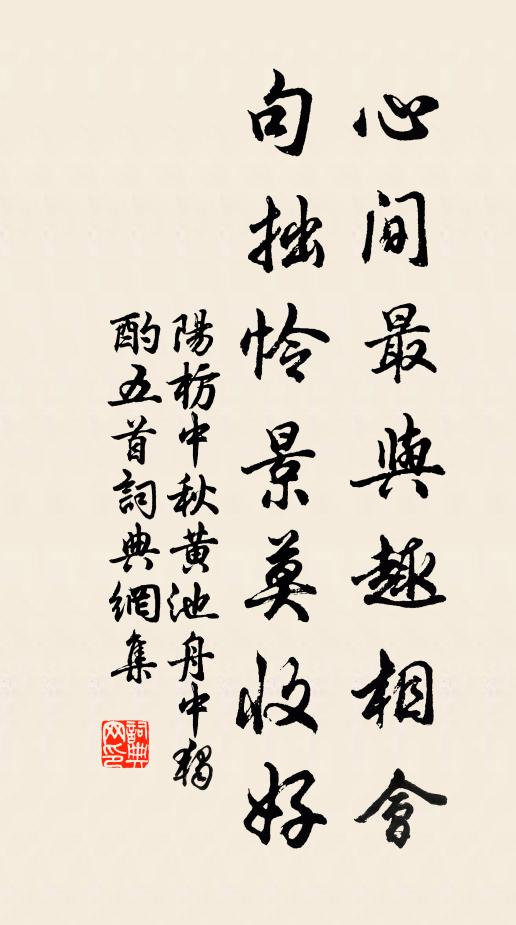 心間最與趣相會
句拙怜景莫收好
陽枋中秋黄池舟中獨
酌五首詞典網集
詞典
网印